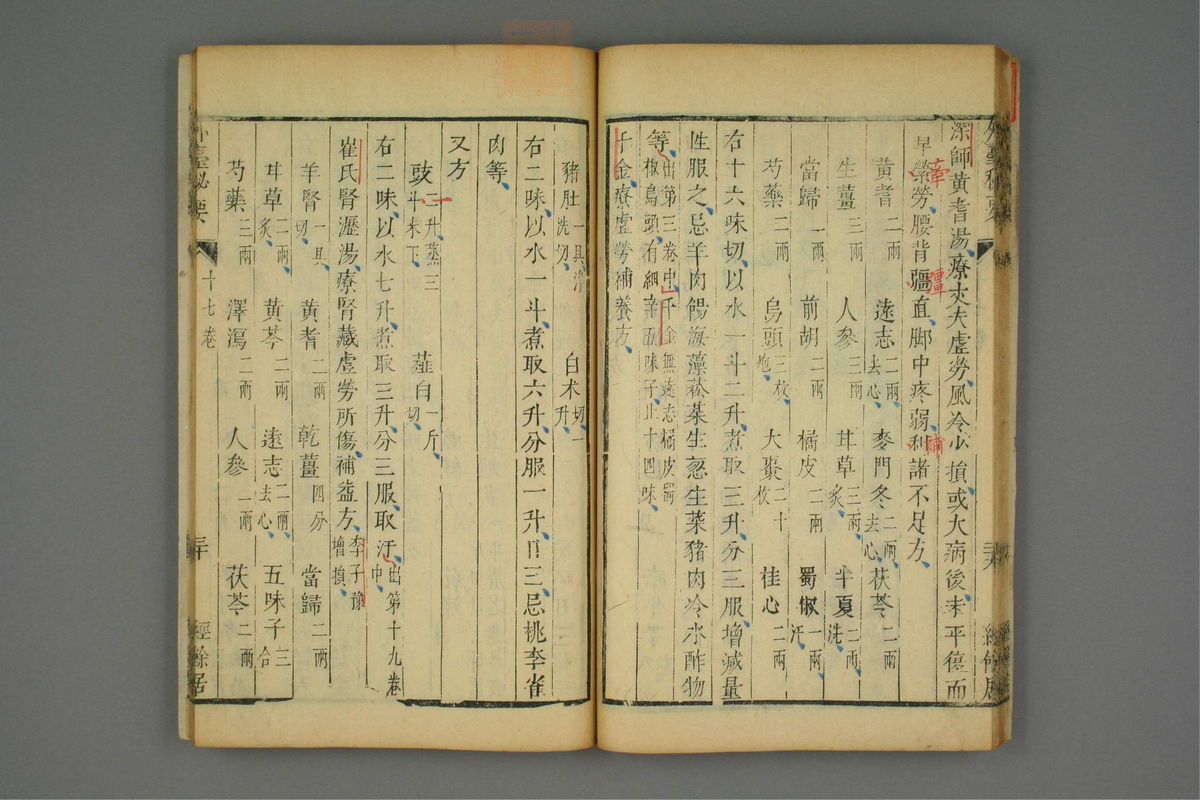 深師黃耆湯療丈夫虛勞風冷少損或大病後未平復而
早縈勞腰背彊直脚中疼弱利諸不足方
牽
僵
補
黃耆二兩 遠志二兩去心 麥門冬二兩去心 茯苓二兩
生薑三兩 人參三兩 甘草三兩炙 半夏二兩洗
當歸一兩 前胡二兩 橘皮二兩 蜀椒一兩汗
芍藥二兩 烏頭三枚炮 大棗二十枚 桂心二兩
右十六味切以水一斗二升煮取三升分三服增減量
性服之忌羊肉餳海藻菘菜生葱生菜豬肉冷水酢物
等出第三卷中千金無遠志橘皮蜀椒烏頭有細辛五味子止十四味
千金療虛勞補養方
豬肚一具淨洗切 白术切一升
右二味以水一斗煮取六升分服一升日三忌桃李雀
肉等
又方
豉二升蒸三斗米下 薤白一斤切
右二味以水七升煮取三升分三服取汗出第十九卷中
崔氏腎瀝湯療腎藏虛勞所傷補益方李子豫增損
羊腎一具切 黃耆二兩 乾薑四分 當歸二兩
甘草二兩炙 黃芩二兩 遠志二兩去心 五味子三合
芍藥三兩 澤瀉二兩 人參一兩 茯苓二兩
外臺秘要 十七卷 三十 經餘居